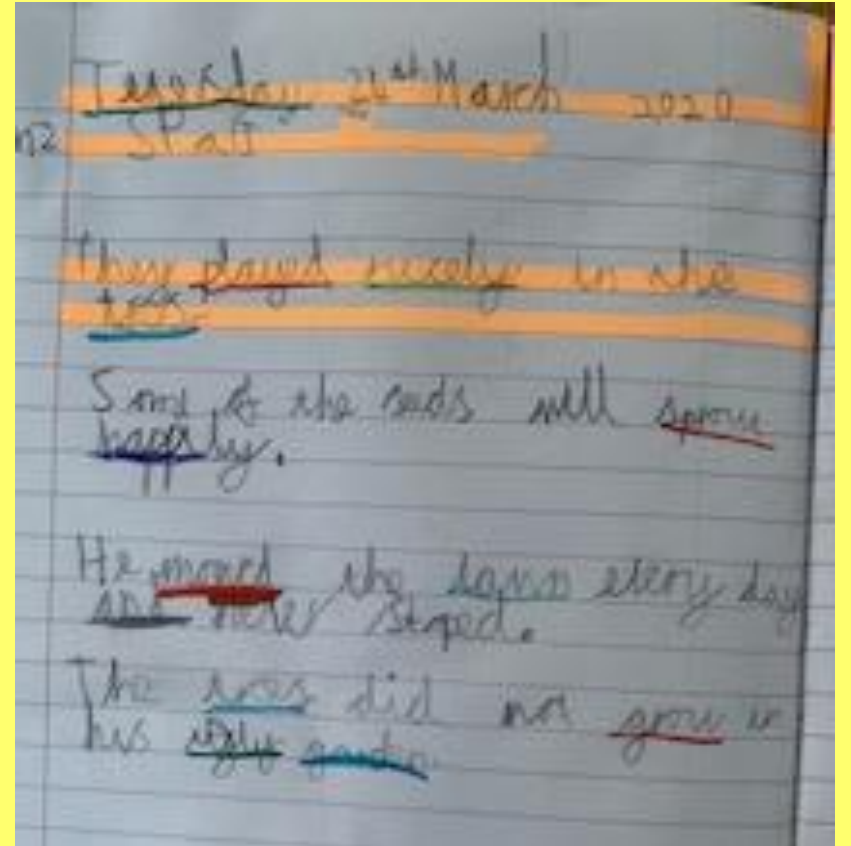 Tuesday 24th March 2020
SPaG
They played nicely in the
Some of the seeds will
happily.
He the lawn every day
and never stoped.
The did not grow in
his ugly garden.